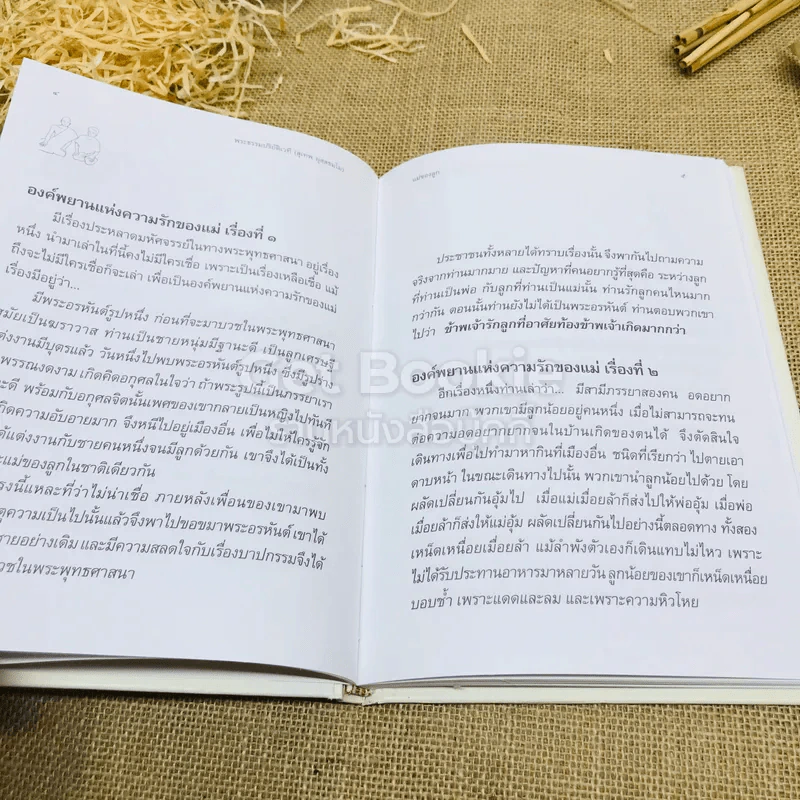 ๔
พระธรรมกิตติเวที (สุเทพ
องค์พยานแห่งความรักของแม่ เรื่องที่ ๑
มีเรื่องประหลาดมหัศจรรย์ในทางพระพุทธศาสนา อยู่เรื่อง
หนึ่ง นำมาเล่าในที่นี้คงไม่มีใครเชื่อ เพราะเป็นเรื่องเหลือเชื่อ แม้
ถึงจะไม่มีใครเชื่อก็จะเล่า เพื่อเป็นองค์พยานแห่งความรักของแม่
เรื่องมีอยู่ว่า...
มีพระอรหันต์รูปหนึ่ง ก่อนที่จะมาบวชในพระพุทธศาสนา
สมัยเป็นฆราวาส ท่านเป็นชายหนุ่มมีฐานะดี เป็นลูกเศรษฐี
ต่งงานมีบุตรแล้ว วันหนึ่งไปพบพระอรหันต์รูปหนึ่ง ซึ่งมีรูปร่าง
พรรณงดงาม เกิดคิดอกุศลในใจว่า ถ้าพระรูปนี้เป็นภรรยาเรา
ะดี พร้อมกับอกุศลจิตนั้นเพศของเขากลายเป็นหญิงไปทันที
กิดความอับอายมาก จึงหนีไปอยู่เมืองอื่น เพื่อไม่ให้ใครรู้จัก
ต้แต่งงานกับชายคนหนึ่งจนมีลูกด้วยกัน เขาจึงได้เป็นทั้ง
ะแม่ของลูกในชาติเดียวกัน
รงนี้แหละที่ว่าไม่น่าเชื่อ ภายหลังเพื่อนของเขามาพบ
ตุความเป็นไปนั้นแล้วจึงพาไปขอขมาพระอรหันต์ เขาได้
รายอย่างเดิม และมีความสลดใจกับเรื่องบาปกรรมจึงได้
วชในพระพุทธศาสนา
แม่ของลูก
๕
ประชาชนทั้งหลายได้ทราบเรื่องนั้น จึงพากันไปถามความ
จริงจากท่านมากมาย และปัญหาที่คนอยากรู้ที่สุดคือ ระหว่างลูก
ที่ท่านเป็นพ่อ กับลูกที่ท่านเป็นแม่นั้น ท่านรักลูกคนไหนมาก
กว่ากัน ตอนนั้นท่านยังไม่ได้เป็นพระอรหันต์ ท่านตอบพวกเขา
ไปว่า ข้าพเจ้ารักลูกที่อาศัยท้องข้าพเจ้าเกิดมากกว่า
องค์พยานแห่งความรักของแม่ เรื่องที่ ๒
อีกเรื่องหนึ่งท่านเล่าว่า... มีสามีภรรยาสองคน อดอยาก
ยากจนมาก พวกเขามีลูกน้อยอยู่คนหนึ่ง เมื่อไม่สามารถจะทน
ต่อความอดอยากยากจนในบ้านเกิดของตนได้ จึงตัดสินใจ
เดินทางเพื่อไปทำมาหากินที่เมืองอื่น ชนิดที่เรียกว่า ไปตายเอา
ดาบหน้า ในขณะเดินทางไปนั้น พวกเขานำลูกน้อยไปด้วย โดย
ผลัดเปลี่ยนกันอุ้มไป เมื่อแม่เมื่อยล้าก็ส่งไปให้พ่ออุ้ม เมื่อพ่อ
เมื่อยล้าก็ส่งให้แม่อุ้ม ผลัดเปลี่ยนกันไปอย่างนี้ตลอดทาง ทั้งสอง
เหน็ดเหนื่อยเมื่อยล้า แม้ลำพังตัวเองก็เดินแทบไม่ไหว เพราะ
ไม่ได้รับประทานอาหารมาหลายวัน ลูกน้อยของเขาก็เหน็ดเหนื่อย
บอบช้ำ เพราะแดดและลม และเพราะความหิวโหย
Get Bookie
ร้านหนังสือเก็ท